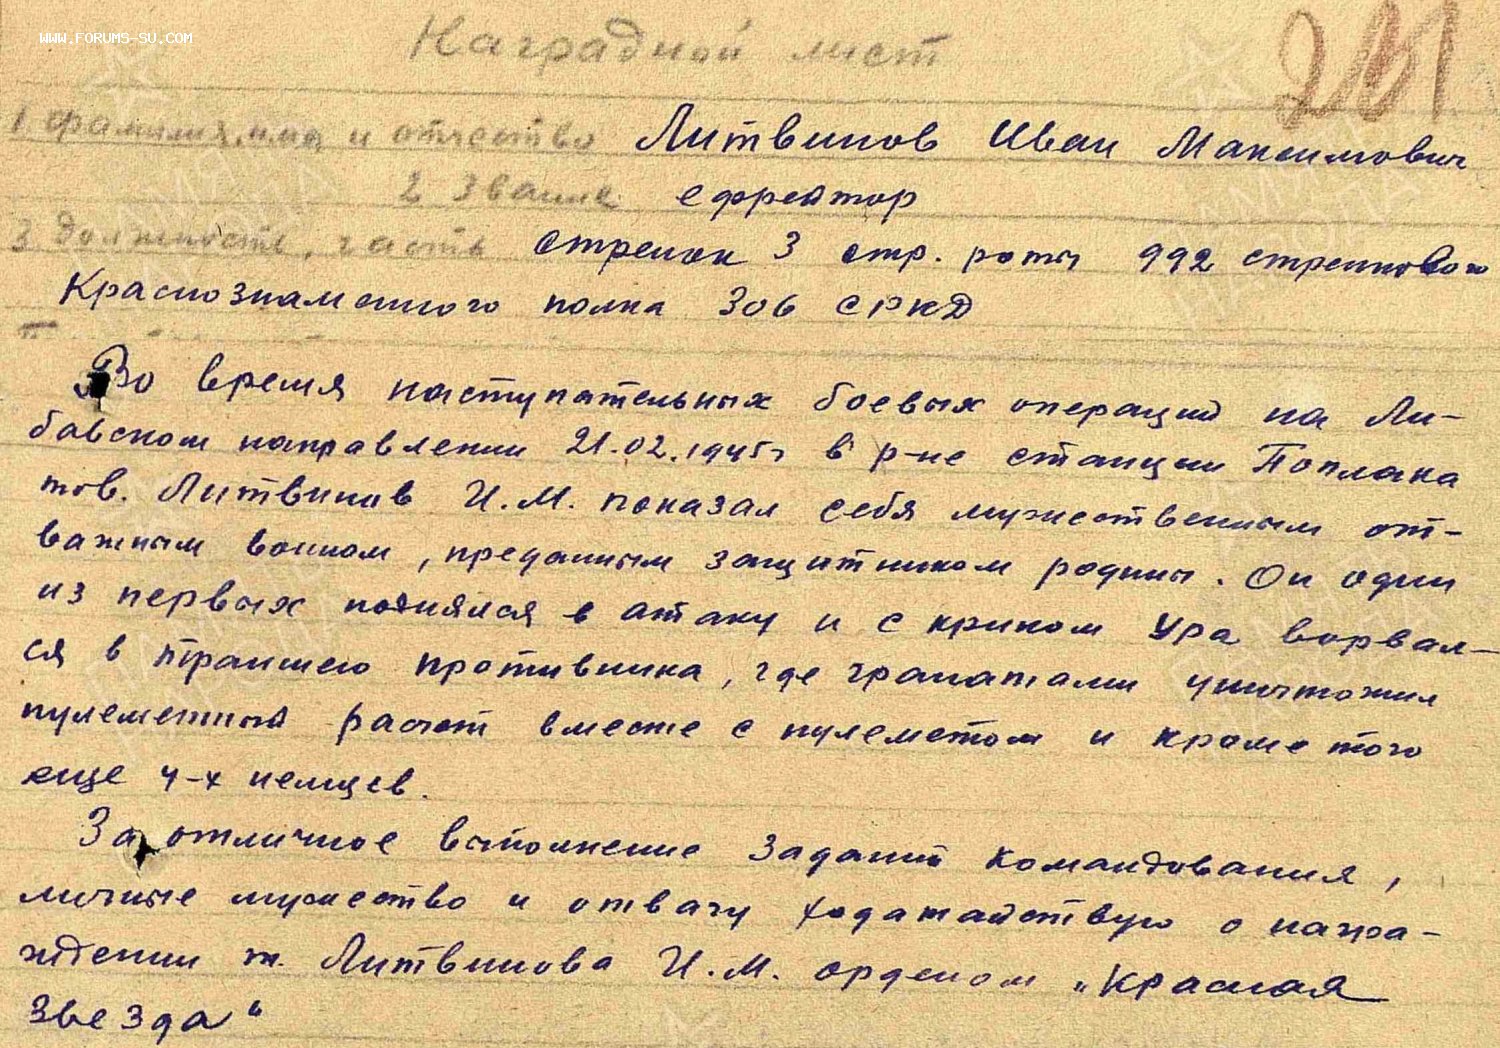 WWW.FORUMS-SU.COM
Наградной лист
201
1 фамилия, имя и отчество Литвинов Иван Максимович
2 Звание ефрейтор
3 Должность, часть стрелок 3 стр. роты 992 стрелкового
Краснознаменного полка 306 СРКД
Во время наступательных боевых операций на Ли-
бавском направлении 21.02.1945г в р-не станции Поплака
тов. Литвинов И.М. показал себя мужественным от-
важным воином, преданным защитником родины. Он один
из первых поднялся в атаку и с криком Ура ворвал-
ся в траншею противника, где гранатами уничтожил
пулеметный расчет вместе с пулеметом и кроме того
еще 4-х немцев.
За отличное выполнение заданий командования,
личные мужество и отвагу ходатайствую о награ-
ждении т. Литвинова И.М. орденом „Красная
Звезда"